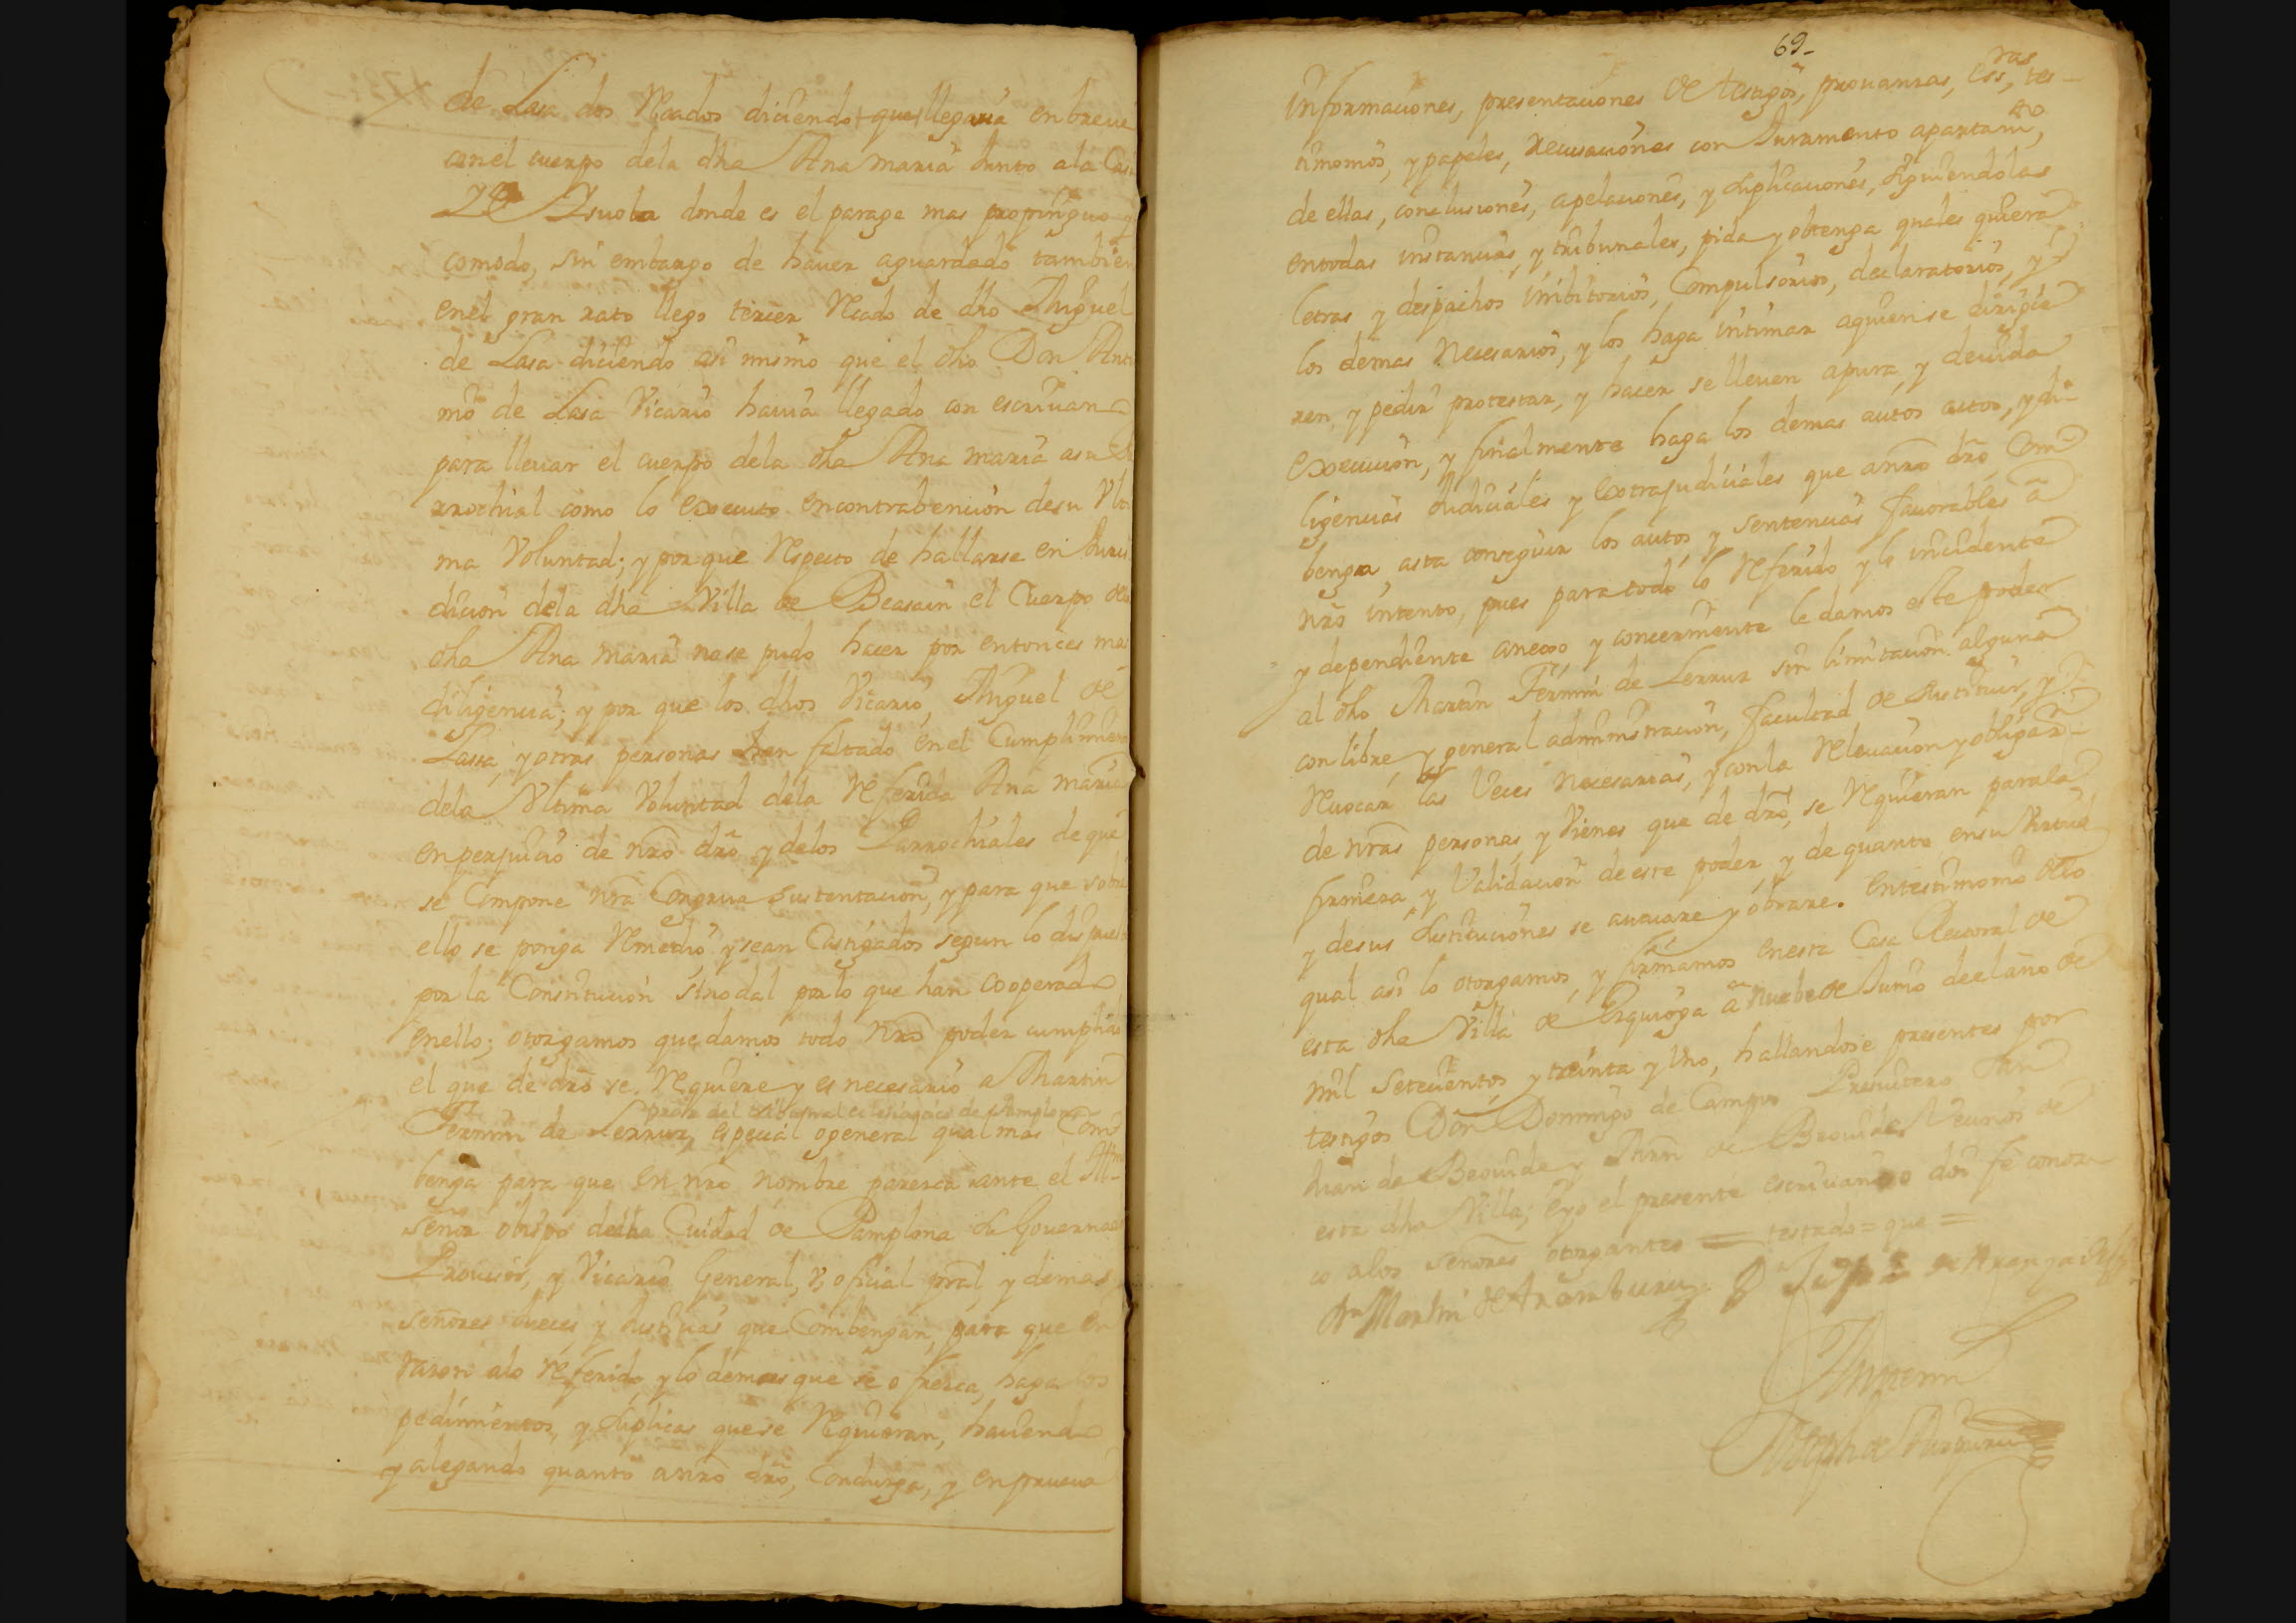 de Lasa dos Rdados diciendo que llegaria en breue
con el cuerpo dela dha Ana maria Junto ala Cas
de Ysuola donde es el parage mas propinguo y
comodo, sin embargo de hauer aguardado tambien
enel gran rato llego tercer Rdado de dho Miguel
de Lasa diciendo asi mismo que el dho Don Anto
nio de Lasa Vicario hauia llegado con escriuano
para lleuar el cuerpo dela dha Ana maria asu Pa
rrochial como lo executo encontrabencion desu Vlti
ma Voluntad; y por que Respecto de hallarse en Juris
dicion dela dha Villa de Beasain el Cuerpo dela
dha Ana maria nose pudo hacer por entonces mas
diligencia; y por que los dhos Vicario, Miguel de
Lassa, y otras personas han faltado enel Cumplimiento
dela Vltima Voluntad dela Referida Ana maria
enperjuicio de nro dro y delos Parrochiales de que
se Compone nra Congrua Sustentacion, y para que sobre
ello se ponga Remedio y sean Castigados segun lo dispuesto
por la Constitucion sinodal por lo que han Cooperado
enello; otorgamos que damos todo nro poder cumplido
el que de dro se Requiere y es necesario a Martin
procr del tribunal eclesiastico de Pamplona
Fermin de Lerruz, especial o general qual mas Com
benga para que en nro nombre parezca ante el Illmo
Señor obispo della Ciudad de Pamplona su Gouernador
Prouisor, y Vicario General, y oficial pral y demas
señores Jueces y Justicias que Combengan, para que en
razon alo Referido, y lo demas que se ofrezca, haga los
pedimientos, y suplicas que se Requieran, haciendo
y alegando quanto anro dro, Conduzga, y en prueua
69-
informaciones, presentaciones de testigos, prouanzas, essras, tes-
timonios, y papeles, Recusaciones con Juramento apartamto,
de ellas, conclusiones, apelaciones, y suplicaciones, siguiendolas
entodas instancias, y tribunales, pida y obtenga quales quiera
letras y despachos inibitorios, Compulsorios, declaratorios, y
los demas Necesarios, y los haga intimar aquien se dirigie
ren, y pedir protestar, y hacer se lleuen apura y deuida
execucion, y finalmente haga los demas autos actos, y di-
ligencias Judiciales y extrajudiciales que anro dro Com
benga, asta conseguir los autos y sentencias fauorables a
nro intento, pues para todo lo Referido y lo incidente
y dependiente anexo y concerniente le damos este poder
al dho Martin Fermin de Lerruz sin limitacion alguna
con libre y general administracion, facultad de sustituir, y
Reuocar las Veces necesarias, y con la Releuacion y obligazn
de nras personas, y Vienes que de dro, se Requieran parala
firmeza y Validacion de este poder y de quanto ensu Virtud
y desus sustituciones se actuare y obrare. Entestimonio delo
qual asi lo otorgamos, y firmamos enesta Casa Rectoral de
esta dha Villa de Ezquioga a nuebe de Junio de el año de
mil Setecientos y treinta y Vno, hallandose presentes por
testigos Don Domingo de Campos Presuitero Juan
de Beouide y Martin de Beouide Vecinos de
esta dha Villa; e yo el presente escriuano doi fe conoz
co alos señores otorgantes = testado = que =
Dn Martin de Aramburu
Antemi
Joseph de Aizpuru